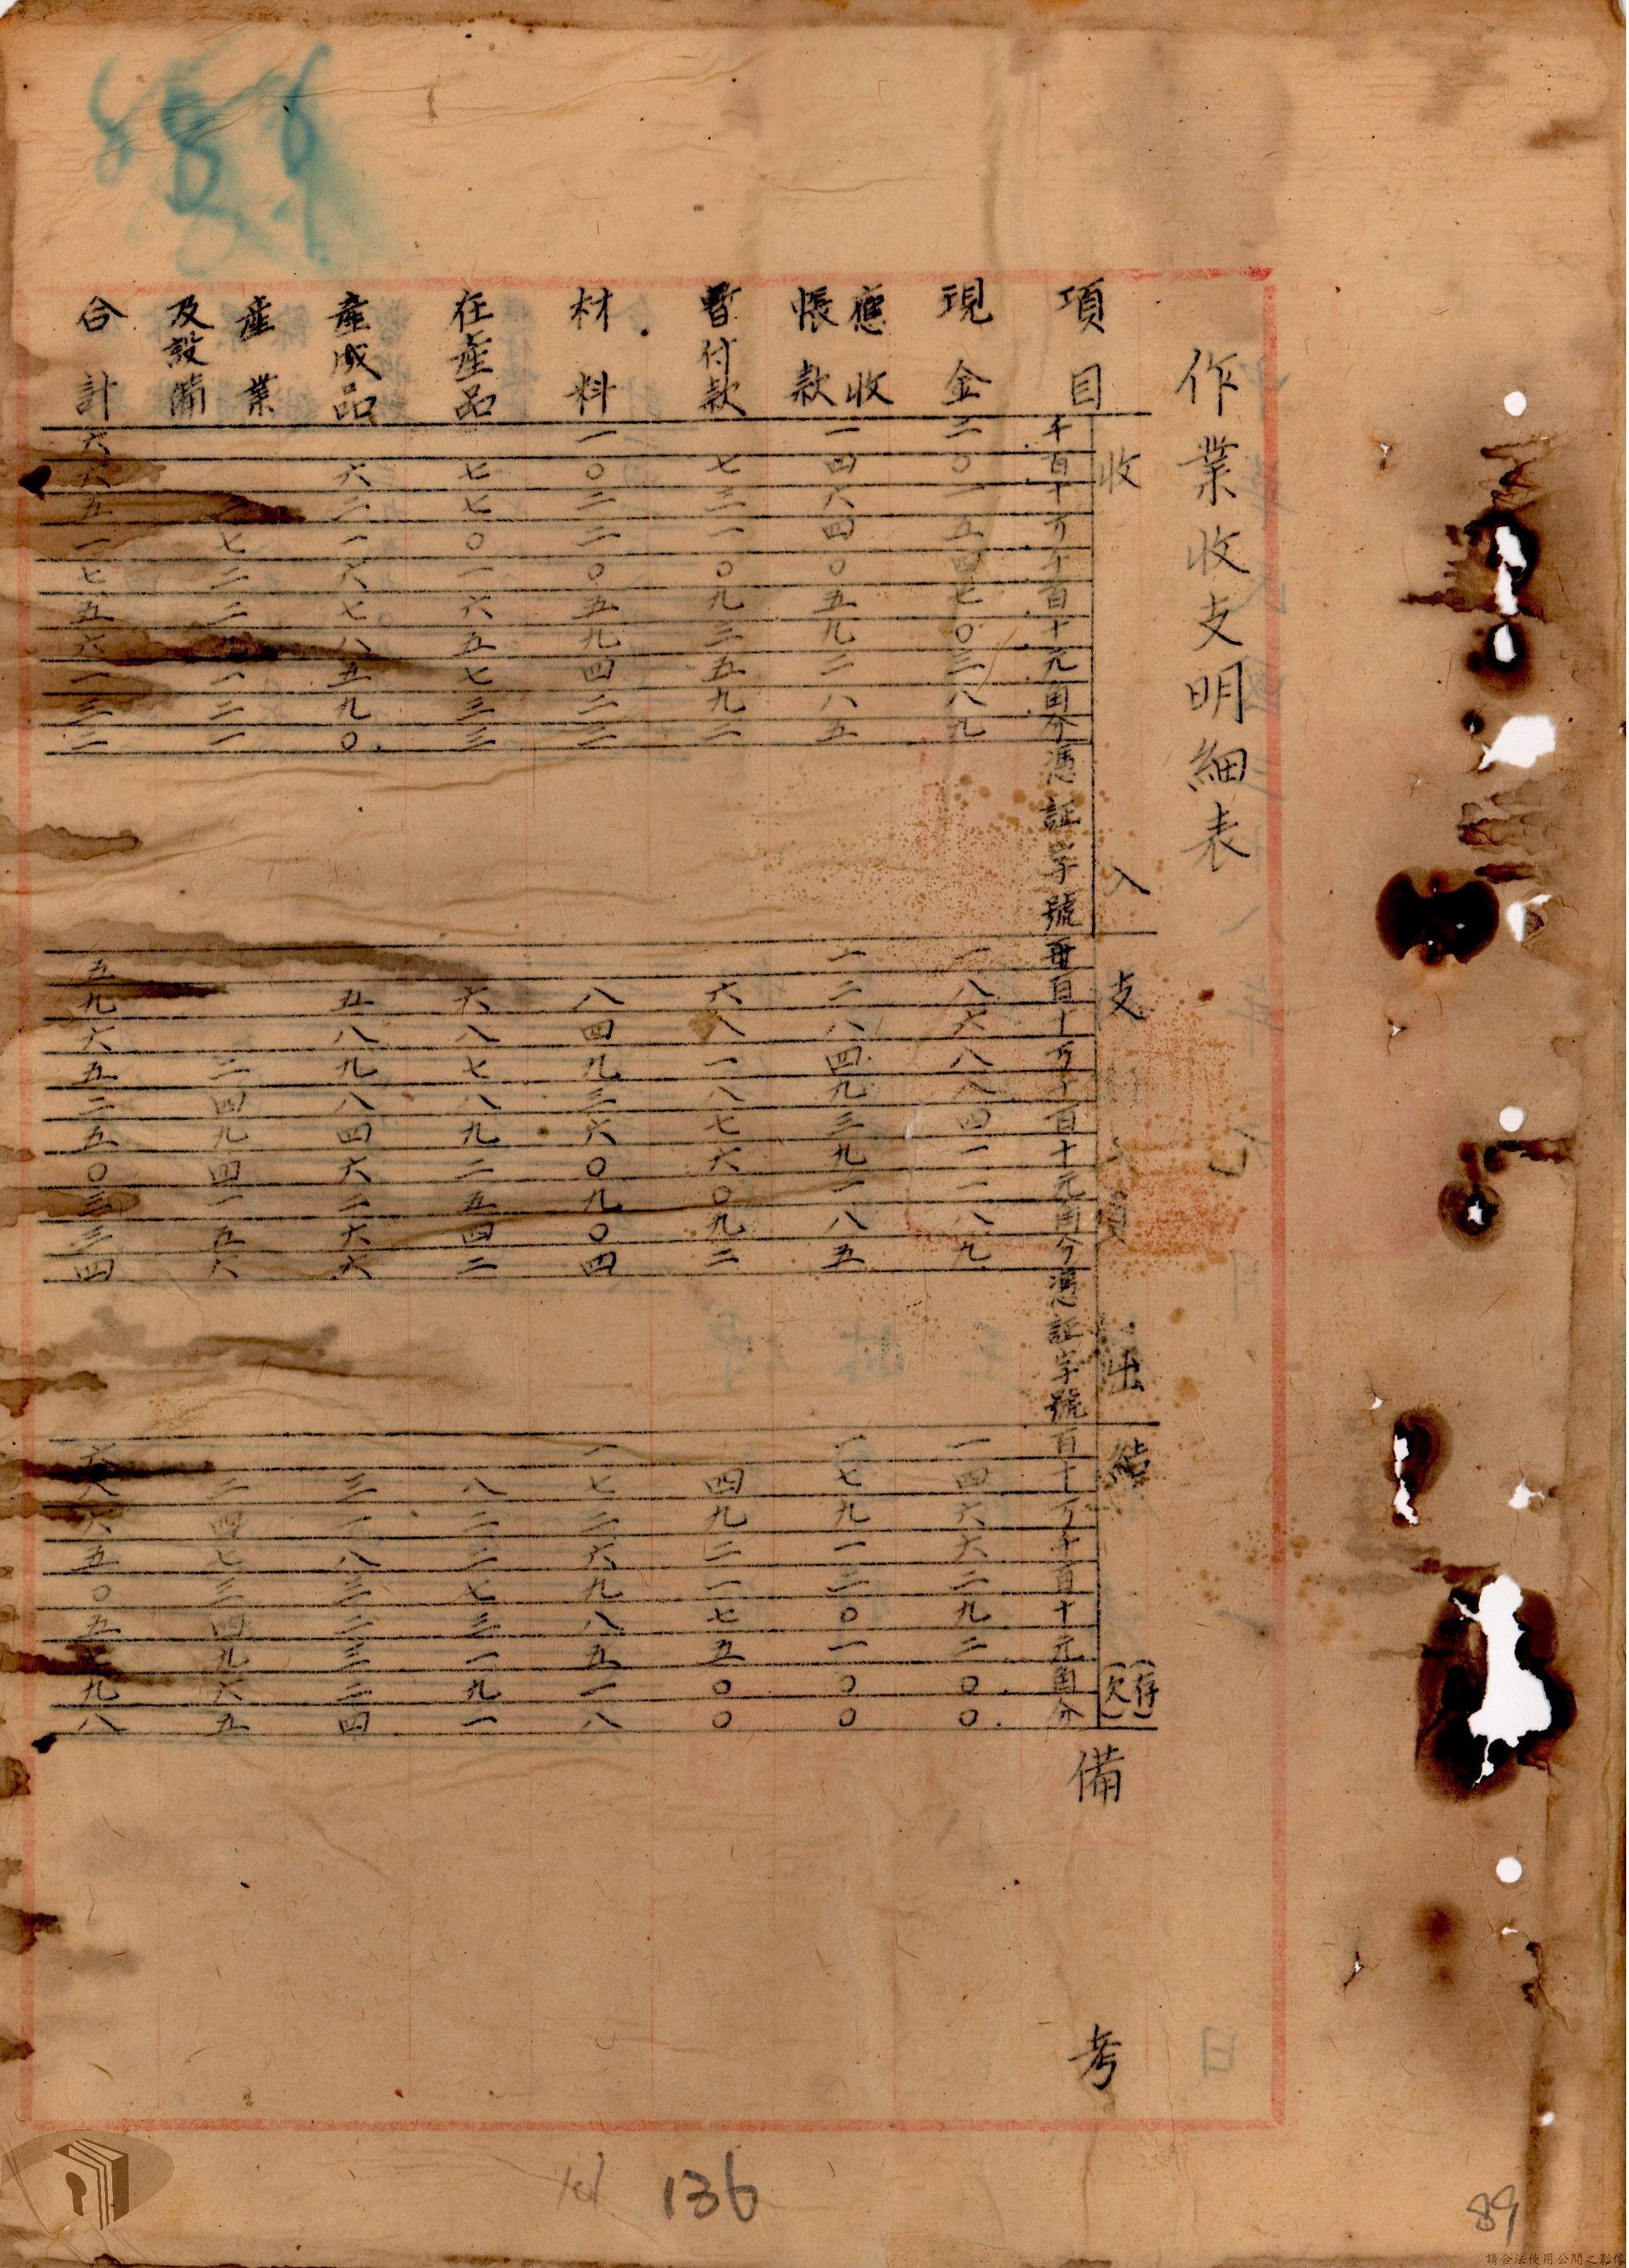 作業收支明細表
收入 支出 結(存)(欠)
項目 千百十万千百十元角分憑証字號 千百十万千百十元角分憑証字號 百十万千百十元角分 備考
現金 二〇一五四七〇三八九 一八六八八四一一八九 一四六六二九二〇〇
應收帳款 一四六四〇五九二八五 一二八四九三九一八五 一七九一二〇一〇〇
暫付款 七三一〇九三五九二 六八一八七六〇九二 四九二一七五〇〇
材料 一〇二二〇五九四二二 八四九三六〇九〇四 一七二六九八五一八
在產品 七七〇一六五七三三 六八七八九二五四二 八二二七三一九一
產成品 六二一六七八五九〇 五八九八四六二六六 三一八三二三二四
產業及設備 二七二二九一二一 二四九四一五六 二四七三四九六五
合計 六六五一七五六一三二 五九六五二五〇三三四 六八六五〇五七九八
136
89
請合法使用公開之影像